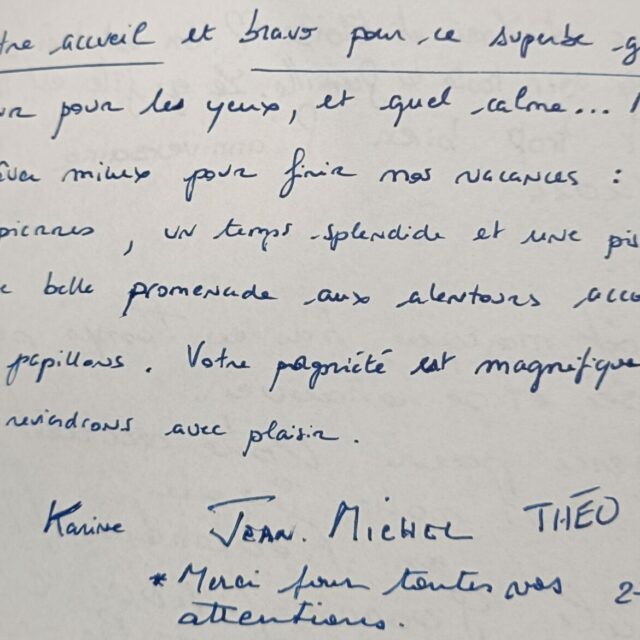 tre accueil et bravo pour ce superbe g
ur pour les yeux, et quel calme... !
ver mieux pour finir nos vacances :
pierres, un temps splendide et une pis
e belle promenade aux alentours acco
papillons. Votre propriété est magnifique
reviendrons avec plaisir.
Karine JEAN. MICHEL THÉO
* Merci pour toutes vos 2-
attentions.